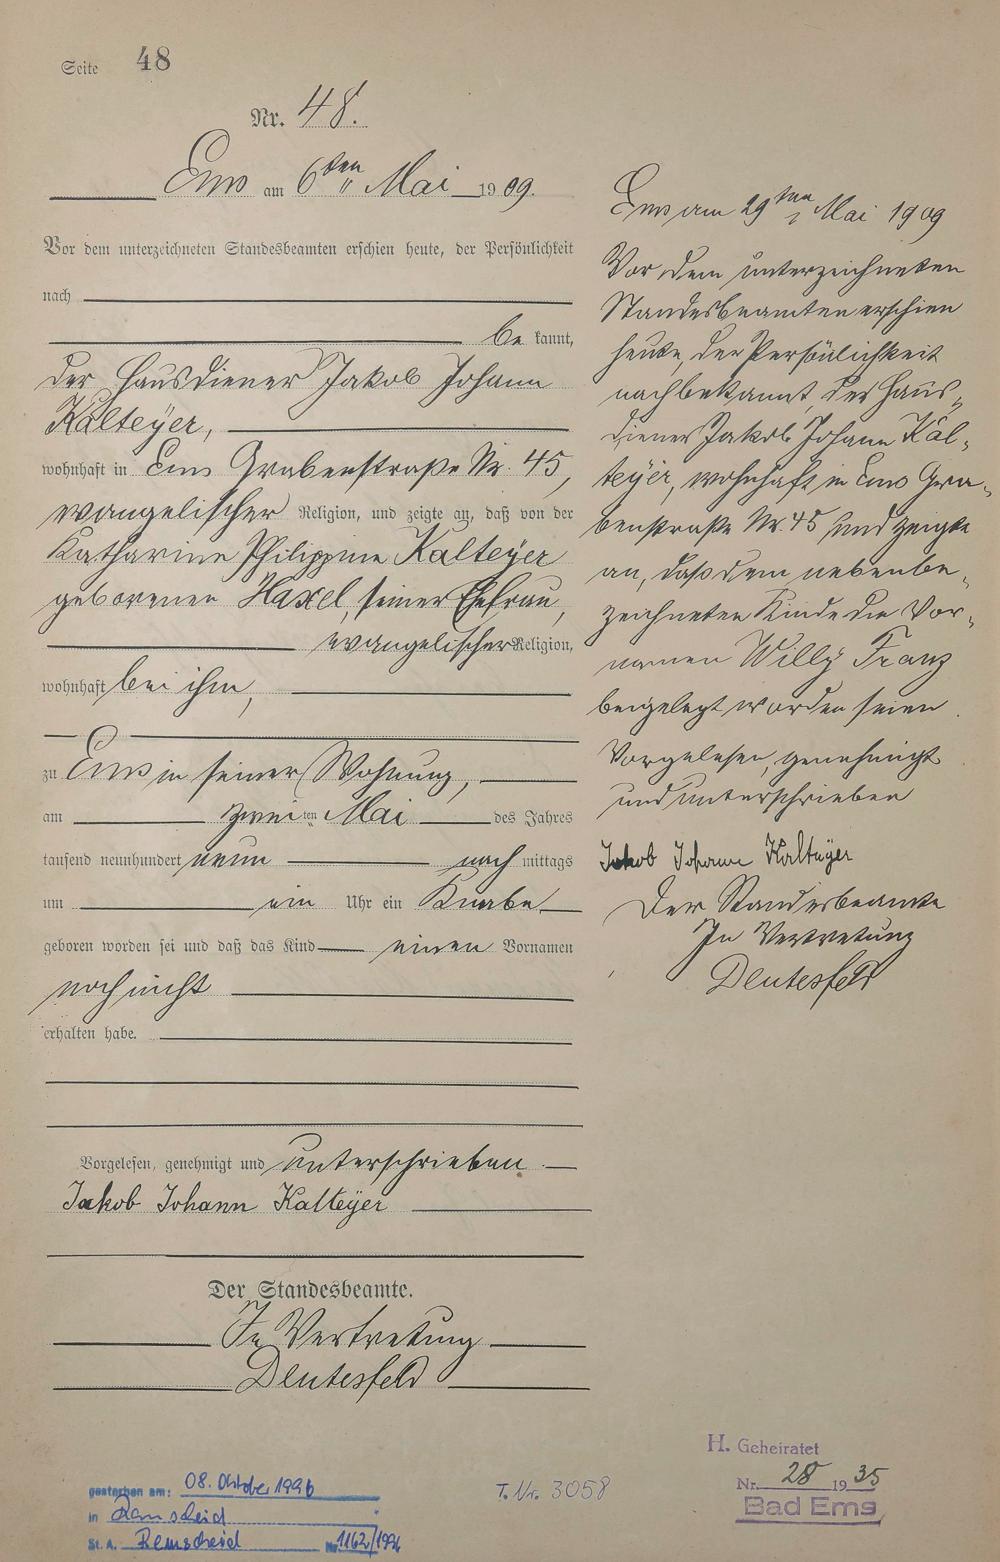 Seite 48
Nr. 48.
Ems am 6ten Mai 1909.
Vor dem unterzeichneten Standesbeamten erschien heute, der Persönlichkeit
nach
be kannt,
der Hausdiener Jakob Johann
Kalteÿer,
wohnhaft in Ems Grabenstraße Nr. 45,
evangelischer Religion, und zeigte an, daß von der
Katharine Philippine Kalteÿer
geborenen Haxel, seiner Ehefrau,
evangelischer Religion,
wohnhaft bei ihm,
zu Ems in seiner Wohnung,
am zweiten Mai des Jahres
tausend neunhundert neun nach mittags
um ein Uhr ein Knabe
geboren worden sei und daß das Kind einen Vornamen
noch nicht
erhalten habe.
Vorgelesen, genehmigt und unterschrieben
Jakob Johann Kalteÿer
Der Standesbeamte.
In Vertretung
Deutesfeld
Ems am 29ten Mai 1909
Vor dem unterzeichneten
Standesbeamten erschien
heute, der Persönlichkeit
nach bekannt, der Haus-
diener Jakob Johann Kal-
teÿer, wohnhaft in Ems Gra-
benstraße Nr. 45 und zeigte
an, daß dem nebenbe-
zeichneten Kinde die Vor-
namen Willÿ Franz
beigelegt worden seien.
Vorgelesen, genehmigt
und unterschrieben
Jakob Johann Kalteÿer
Der Standesbeamte
In Vertretung
Deutesfeld
gestorben am: 08. Oktober 1996
in Remscheid
St. A. Remscheid Nr. 1162/1996
T. Nr. 3058
H. Geheiratet
Nr. 28 1935
Bad Ems